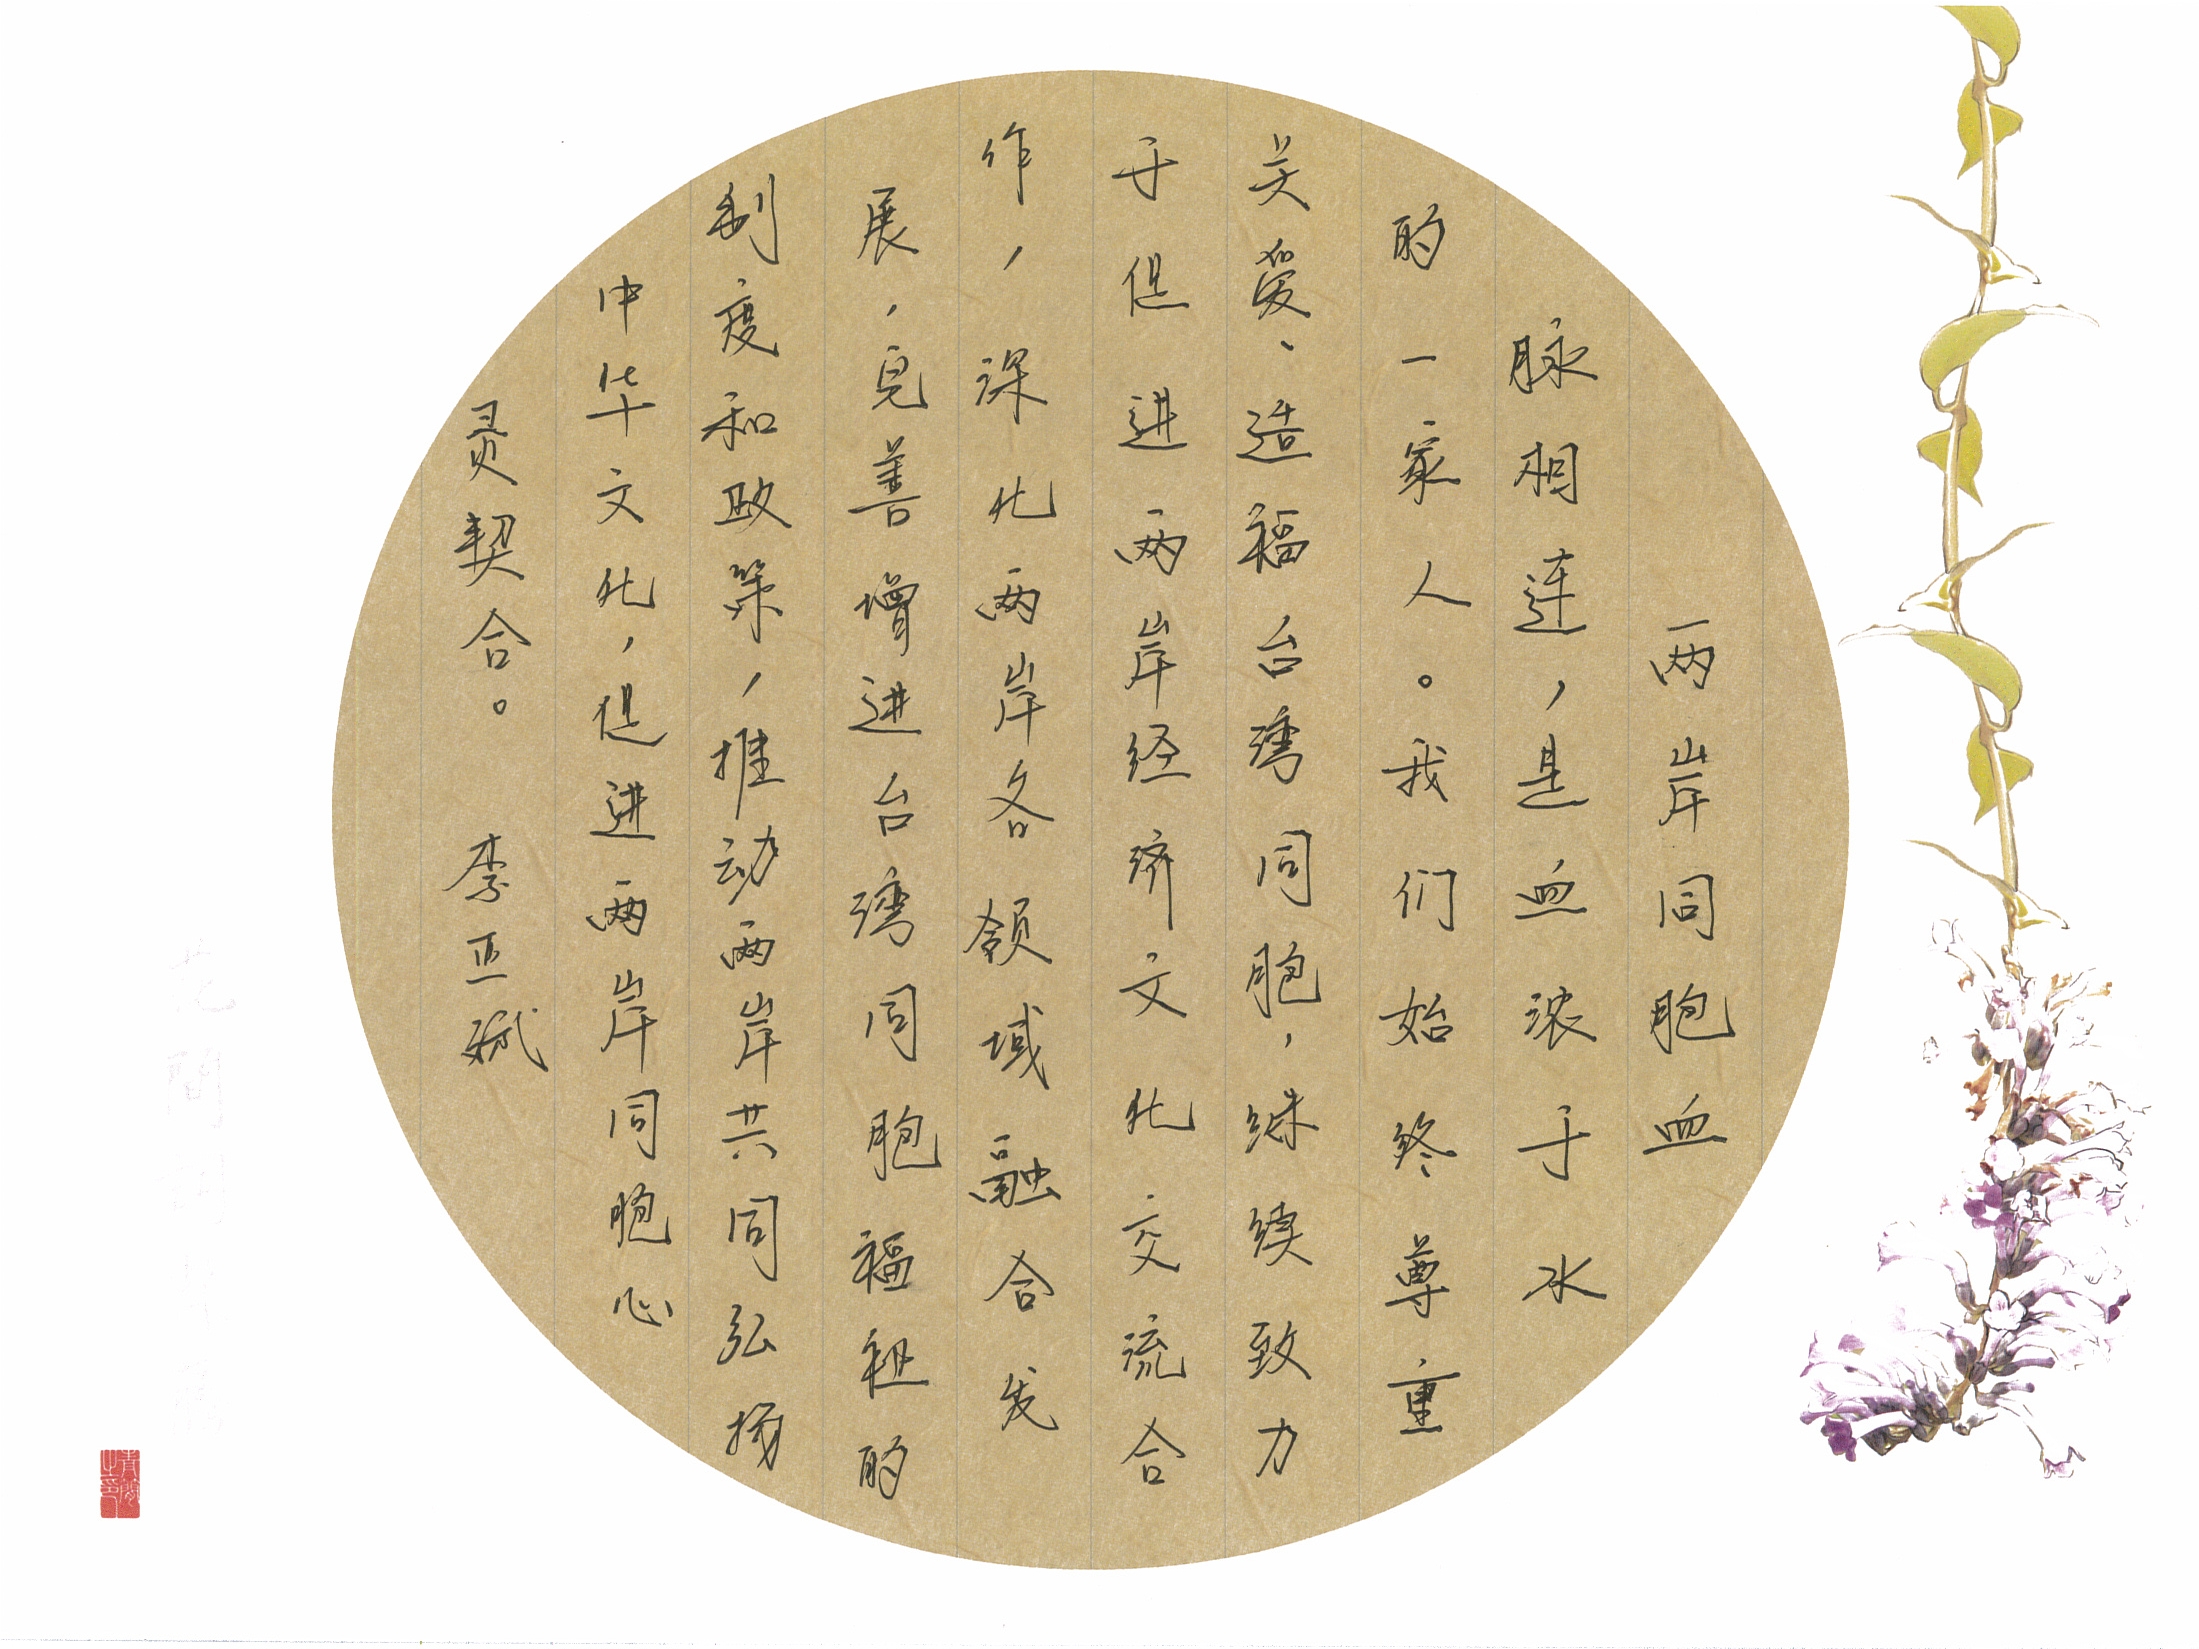 两岸同胞血
脉相连，是血浓于水
的一家人。我们始终尊重
关爱、造福台湾同胞，继续致力
于促进两岸经济文化交流合
作，深化两岸各领域融合发
展，完善增进台湾同胞福祉的
制度和政策，推动两岸共同弘扬
中华文化，促进两岸同胞心
灵契合。 李亚斌